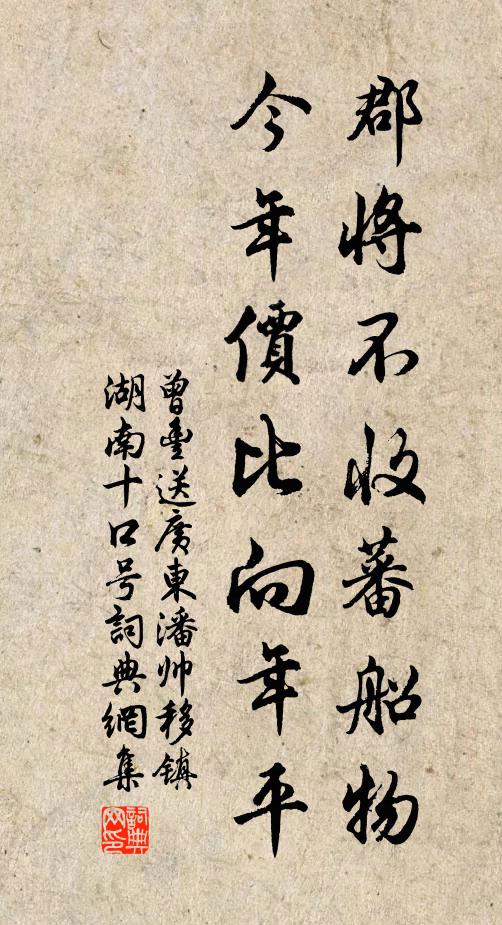 郡將不收蕃船物
今年價比向年平
曾豐送廣東潘帅移镇
湖南十口号詞典網集
詞典
网印